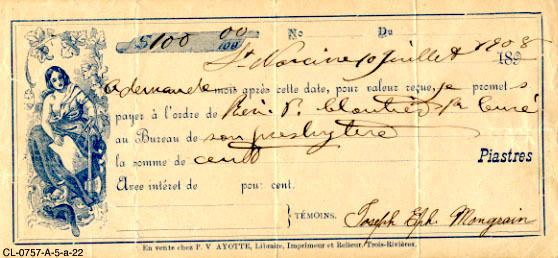 $100 00/100 No Du
St Narcisse 10 Juillet 1908 189
a demande mois après cette date, pour valeur reçue, je promets
payer à l'ordre de Révd P. Cloutier ptr curé
au Bureau de son presbytère
la somme de cent Piastres
Avec intéret de pour cent.
} TÉMOINS. Joseph Eph. Mongrain
En vente chez P. V AYOTTE, Libraire, Imprimeur et Relieur, Trois-Rivières.
CL-0757-A-5-a-22